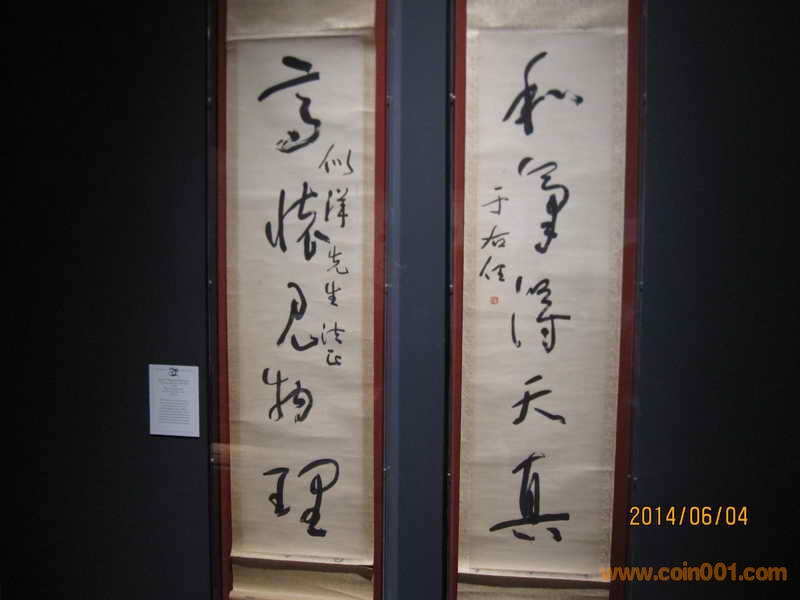 高懷見物理
似洋先生法正
和氣得天真
于右任
2014/06/04
www.coin001.com